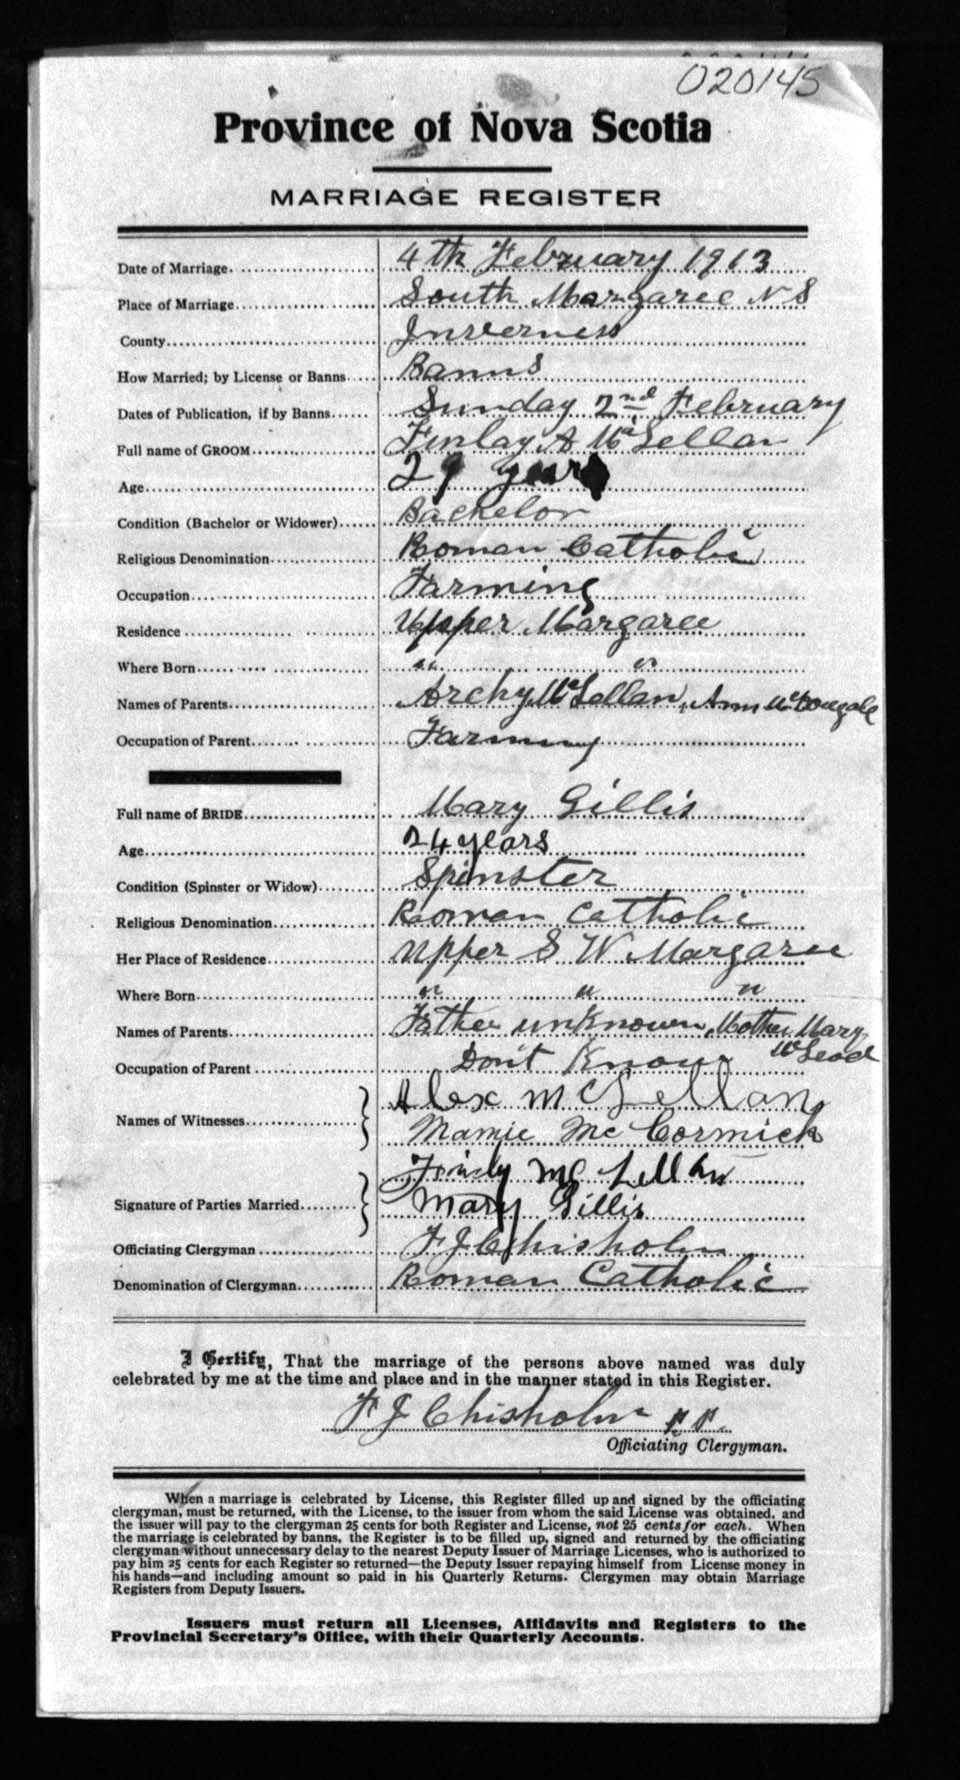 020145
Province of Nova Scotia
MARRIAGE REGISTER
Date of Marriage. 4th February 1913
Place of Marriage South Margaree N S
County Inverness
How Married; by License or Banns Banns
Dates of Publication, if by Banns Sunday 2nd February
Full name of GROOM Finlay A McLellan
Age 29 years
Condition (Bachelor or Widower) Bachelor
Religious Denomination Roman Catholic
Occupation Farming
Residence Upper Margaree
Where Born " "
Names of Parents Archy McLellan, Ann McDougall
Occupation of Parent Farming
Full name of BRIDE Mary Gillis
Age 24 years
Condition (Spinster or Widow) Spinster
Religious Denomination Roman Catholic
Her Place of Residence Upper S W Margaree
Where Born " " "
Names of Parents Father unknown, Mother Mary
McLeod
Occupation of Parent Don't Know
Names of Witnesses Alex McLellan
Mamie McCormick
Signature of Parties Married Finly McLellan
Mary Gillis
Officiating Clergyman F J Chisholm
Denomination of Clergyman Roman Catholic
I Certify, That the marriage of the persons above named was duly
celebrated by me at the time and place and in the manner stated in this Register.
F J Chisholm P.P.
Officiating Clergyman.
When a marriage is celebrated by License, this Register filled up and signed by the officiating
clergyman, must be returned, with the License, to the issuer from whom the said License was obtained, and
the issuer will pay to the clergyman 25 cents for both Register and License, not 25 cents for each. When
the marriage is celebrated by banns, the Register is to be filled up, signed and returned by the officiating
clergyman without unnecessary delay to the nearest Deputy Issuer of Marriage Licenses, who is authorized to
pay him 25 cents for each Register so returned—the Deputy Issuer repaying himself from License money in
his hands—and including amount so paid in his Quarterly Returns. Clergymen may obtain Marriage
Registers from Deputy Issuers.
Issuers must return all Licenses, Affidavits and Registers to the
Provincial Secretary's Office, with their Quarterly Accounts.